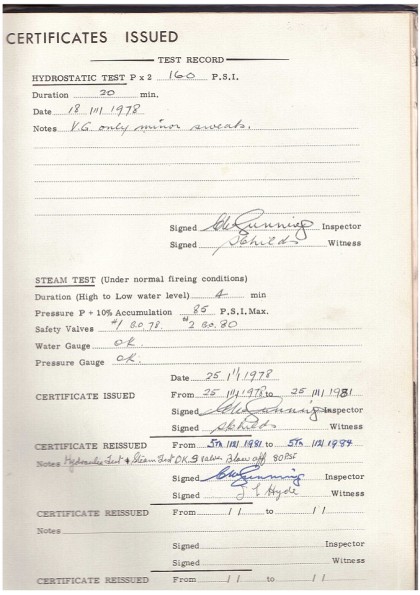 CERTIFICATES ISSUED
TEST RECORD
HYDROSTATIC TEST P x 2 160 P.S.I.
Duration 20 min.
Date 18 / 11 / 1978
Notes V.G. only minor sweats.
Signed Gunning Inspector
Signed S Childs Witness
STEAM TEST (Under normal fireing conditions)
Duration (High to Low water level) 4 min
Pressure P + 10% Accumulation 85 P.S.I. Max.
Safety Valves #1 B.O. 78. #2 B.O. 80
Water Gauge OK.
Pressure Gauge OK.
Date 25 / 11 / 1978
CERTIFICATE ISSUED From 25 / 11 / 1978 to 25 / 11 / 1981
Signed Gunning Inspector
Signed S Childs Witness
CERTIFICATE REISSUED From 5TH / 12 / 1981 to 5TH / 12 / 1984
Notes Hydraulic Test & Steam Test O.K. S Valves Blew off 80 PSI
Signed Gunning Inspector
Hyde Witness
CERTIFICATE REISSUED From / / to / /
Notes
Signed Inspector
Signed Witness
CERTIFICATE REISSUED From / / to / /